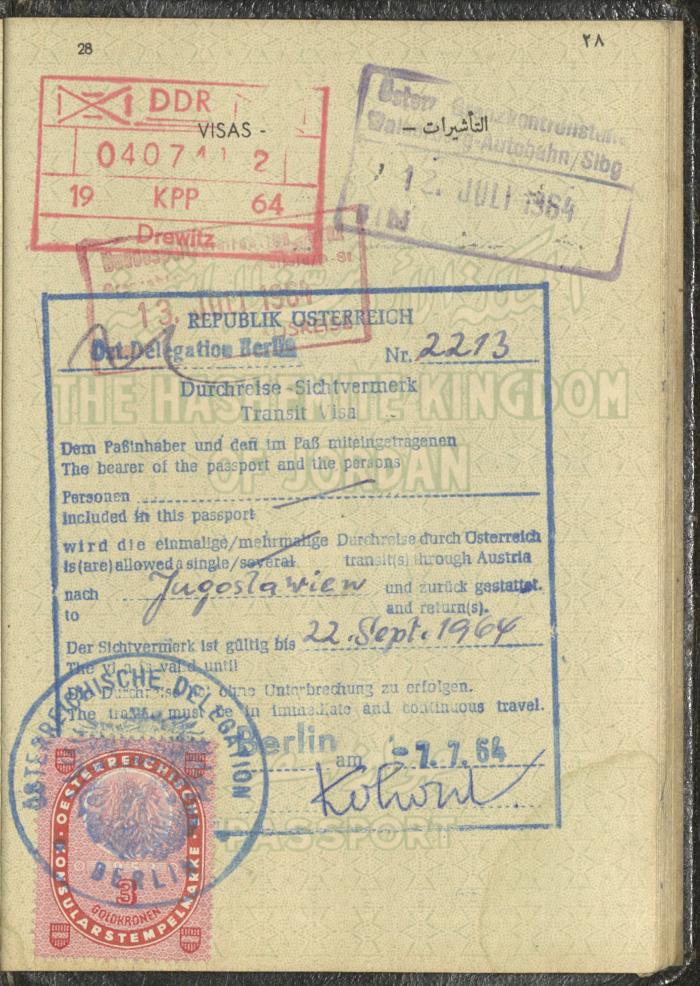 28
٢٨
DDR
VISAS -
التأشيرات -
Österr. Grenzkontrollstelle
Walserberg-Autobahn/Slbg
040741 2
13. JULI 1964
19 KPP 64
EIN
Drewitz
13. JULI 1964
REPUBLIK ÖSTERREICH
Öst. Delegation Berlin
Nr. 2213
Durchreise-Sichtvermerk
Transit Visa
THE HASHEMITE KINGDOM
OF JORDAN
Dem Paßinhaber und den im Paß miteingetragenen
The bearer of the passport and the persons
Personen
included in this passport
wird die einmalige/mehrmalige Durchreise durch Österreich
is (are) allowed a single/several transit(s) through Austria
nach Jugoslawien und zurück gestattet.
to and return(s).
Der Sichtvermerk ist gültig bis 22. Sept. 1964
The visa is valid until
Die Durchreise hat ohne Unterbrechung zu erfolgen.
The transit must be in immediate and continuous travel.
Berlin am -7. 7. 64
PASSPORT
ÖSTERREICHISCHE DELEGATION
BERLIN
OESTERREICHISCHE
KONSULARSTEMPELMARKE
3
GOLDKRONEN